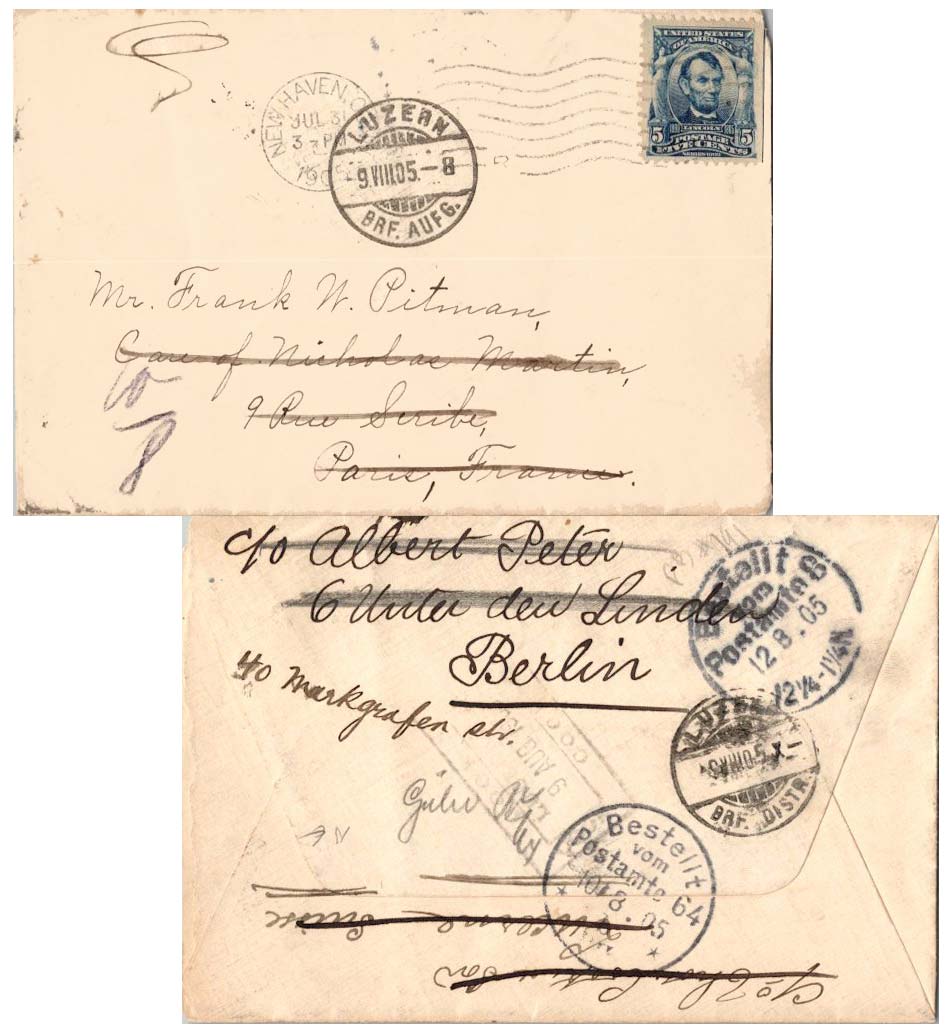 UNITED STATES
OF AMERICA
5 LINCOLN 5
POSTAGE
FIVE CENTS
NEW HAVEN,
JUL 31
3
190
LUZERN
9.VIII.05.–8
BRF. AUFG.
Mr. Frank W. Pitman,
Care of Nicholas Martin,
9 Rue Scribe,
Paris, France.
10
8
c/o Albert Peter
6 Unter den Linden
Berlin
40 Markgrafen str.
Bestellt
vom
Postamte 8
12 8.05
12¼-1¼N
LUZERN
BRF. DISTR.
9 AUG
Bestellt
vom
Postamte 64
10/8.05
c/o
Luzerne Suisse